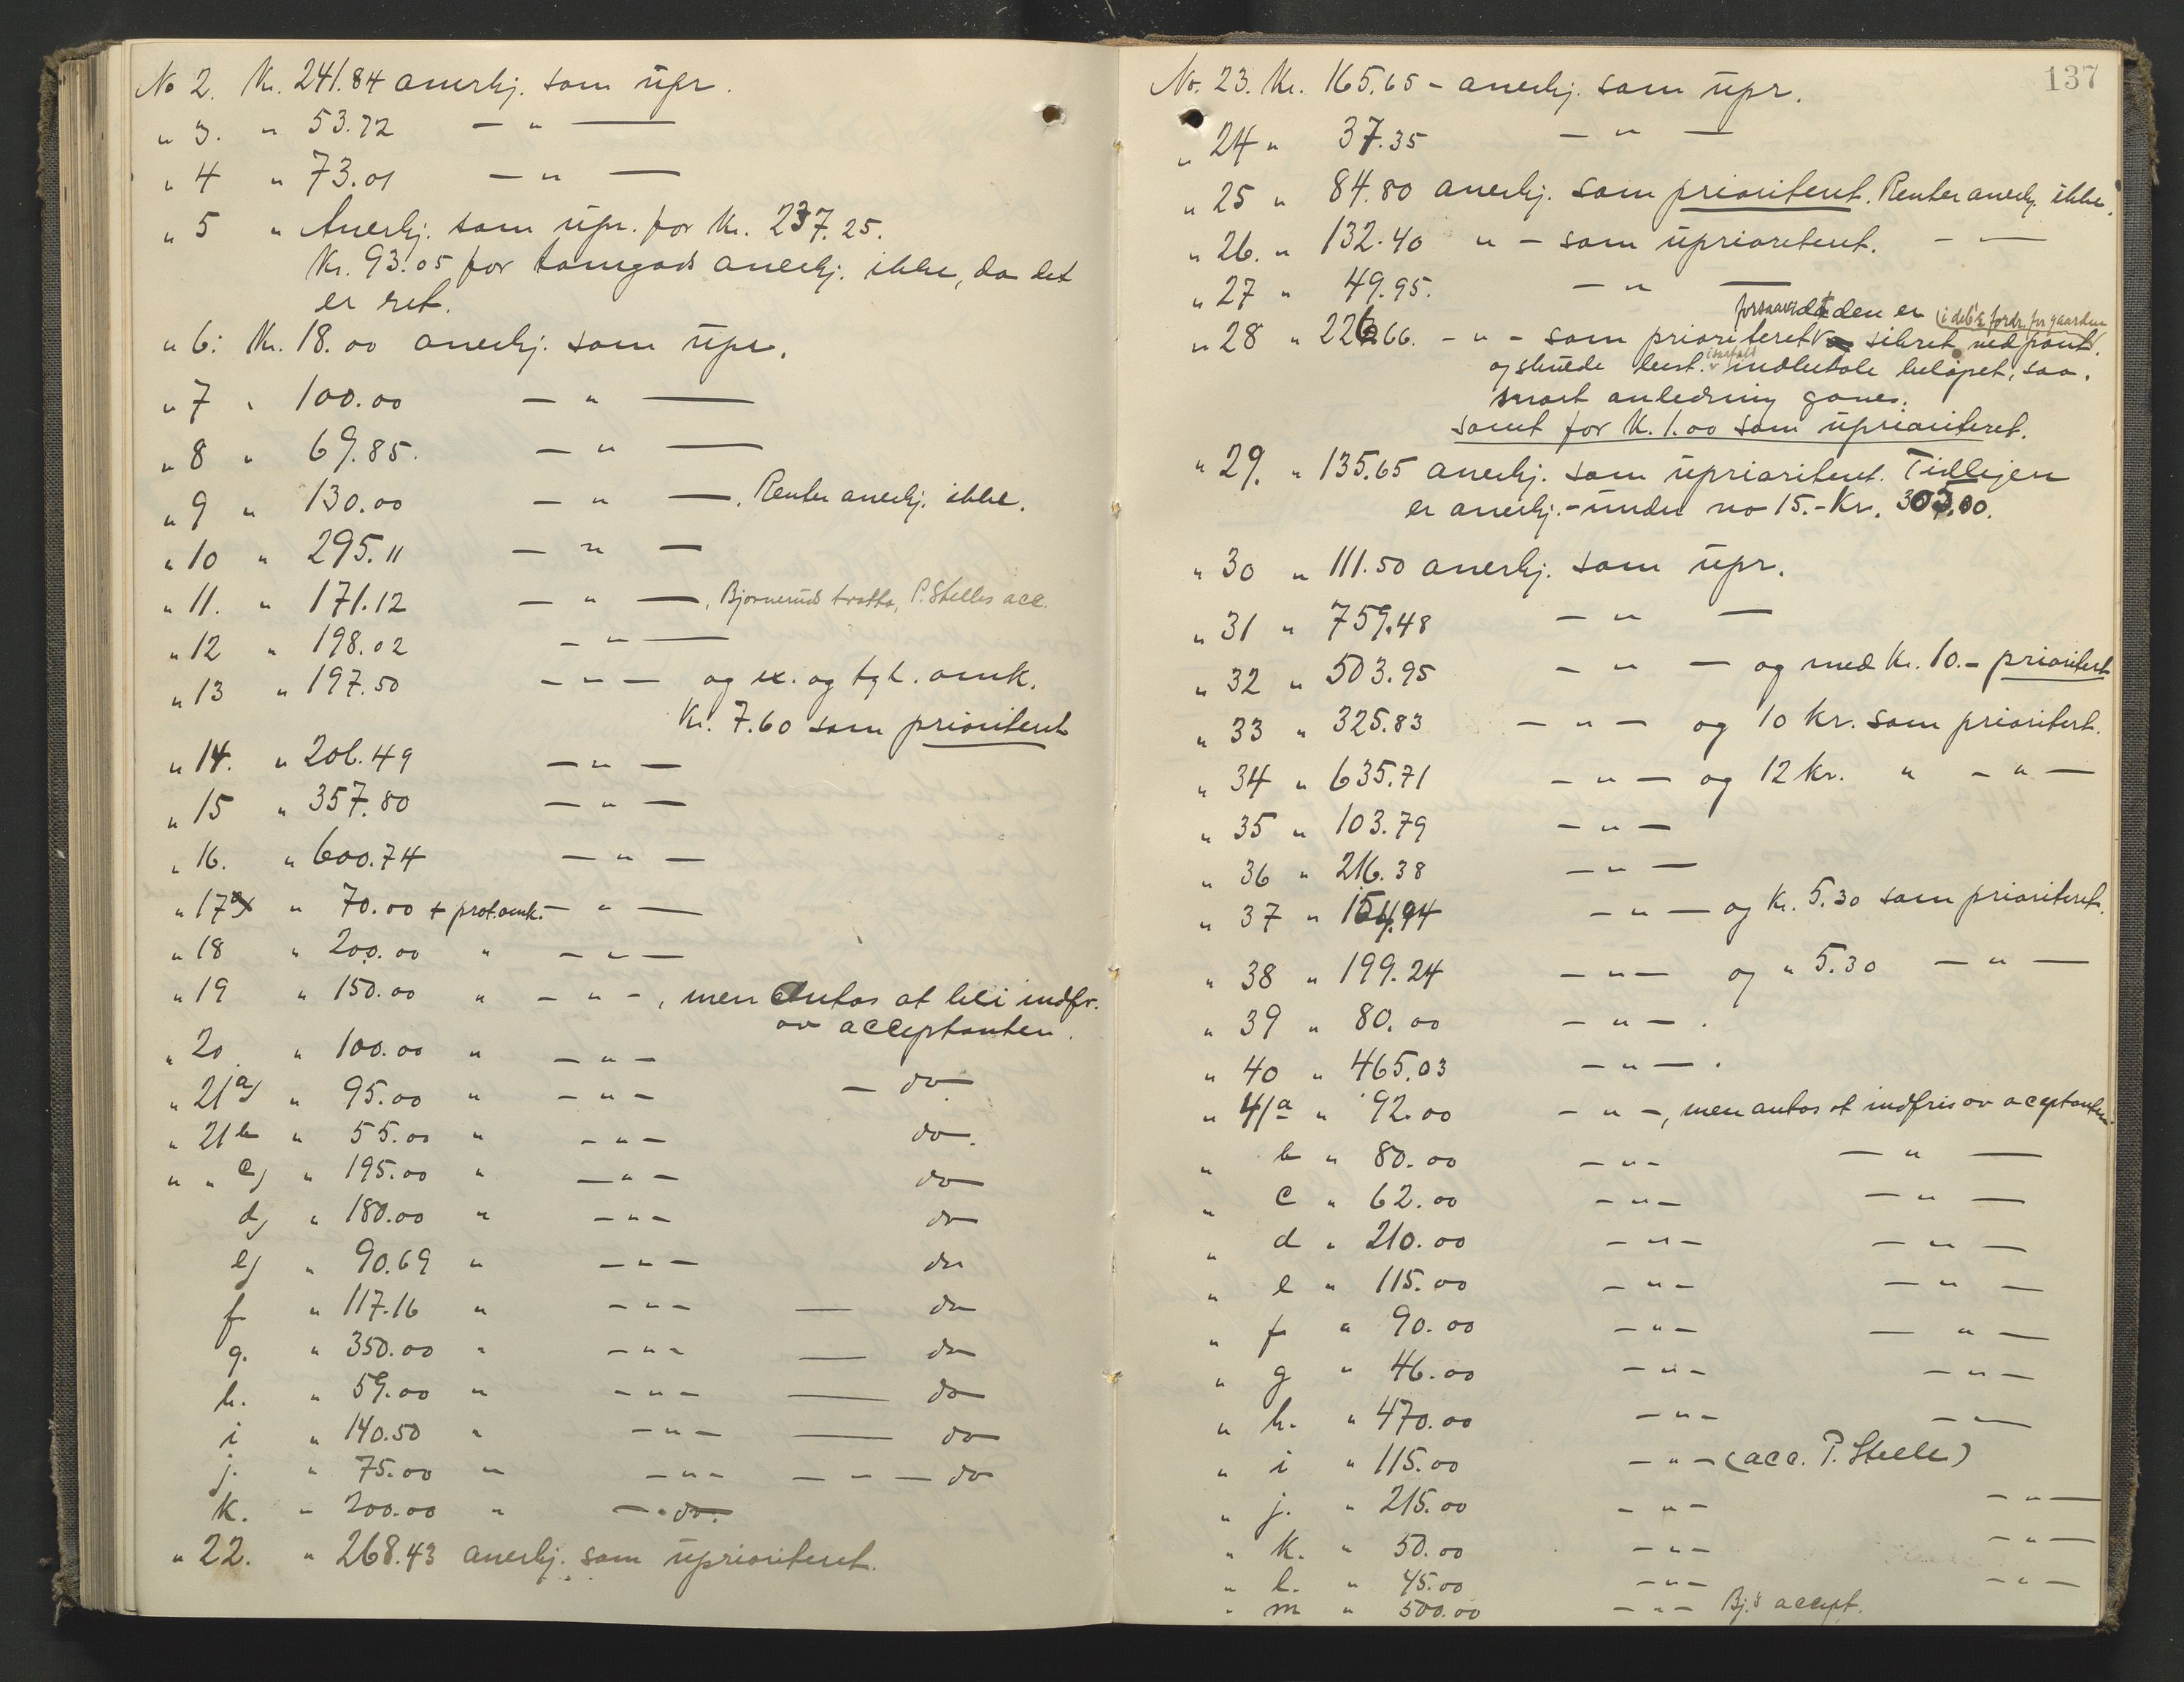 No 2. Kr. 241.84 anerkj. som upr.
" 3. " 53.72 — " —
" 4 " 73.01 — " —
" 5 " Anerkj. som upr. for Kr. 237.25.
Kr. 93.05 for tomgods anerkj. ikke, da det
er ret.
" 6: Kr. 18.00 anerkj. som upr.
" 7 " 100.00 — " —
" 8 " 69.85. — " —
" 9 " 130.00 — " —. Renter anerkj. ikke.
" 10 " 295.11 — " —
" 11. " 171.12 — " —, Bjørneruds tratta, P. Stelles acc.
" 12 " 198.02 — " —
" 13 " 197.50 — " — og ex. og tgl. omk.
Kr. 7.60 som prioriteret
" 14. " 206.49 — " —
" 15 " 357.80 — " —
" 16. " 600.74 — " —
" 17 " 70.00 + prot.omk. — " —
" 18 " 200.00 " — " —
" 19 " 150.00 " — " —, men antas at bli indfr.
av acceptanten.
" 20 " 100.00 " — " —
" 21a) " 95.00 " — " — — do
" 21b " 55.00 " — " — do.
" " c) " 195.00 " — " — do
d) " 180.00 " — " — do
e) " 90.69 " — " — do
f " 117.16 " — " — — do
g. " 350.00 " — " — — do
h. " 59.00 " — " — — do
i " 140.50 " — " — — do
j. " 75.00 " — " — — " — do
k. " 200.00 " — " do.
" 22. " 268.43 anerkj. som uprioriteret.
137
No. 23. Kr. 165.65 - anerkj. som upr.
" 24 " 37.35 — " —
" 25 " 84.80 anerkj. som prioriteret. Renter anerkj. ikke.
" 26. " 132.40 " - som uprioriteret. — —
" 27 " 49.95. — " —
forsaavidt den er (i del 2 fordr. for gaarden
" 28 " 226.66. - " - som prioriteret sikret ved pant.
og skulde best. isaafald indbetale beløpet, saa-
snart anledning gaves.
samt for K. 1.00 som uprioriteret.
" 29. " 135.65 anerkj. som uprioriteret. Tidligere
er anerkj. - under no 15. - Kr. 305.00.
" 30 " 111.50 anerkj. som upr.
" 31 " 759.48 — " —
" 32 " 503.95 — " — og med Kr. 10.- prioritert
" 33 " 325.83 — " — og 10 kr. som prioritert.
" 34 " 635.71 — " — og 12 kr. " — " —
" 35 " 103.79 — " —
" 36 " 216.38 — " —
" 37 " 154.94 — " — og Kr. 5.30 som prioriteret.
" 38 " 199.24 — " — og " 5.30 — " —
" 39 " 80.00 — " — .
" 40 " 465.03 — " — .
" 41a " 92.00 — " —, men antas at indfries av acceptanten.
" b " 80.00 — " — — " —
" c " 62.00 — " — — " —
" d " 210.00 — " — — " —
" e " 115.00 — " — — " —
" f " 90.00 — " — — " —
" g " 46.00 — " — — " —
" h. " 470.00 — " — — " —
" i " 115.00 — " — (acc. P. Stelle)
" j. " 215.00 — " — — " —
" k. " 50.00 — " — — " —
" l. " 45.00 — " — — " —
" m " 500.00 — " — Bj.s accept.